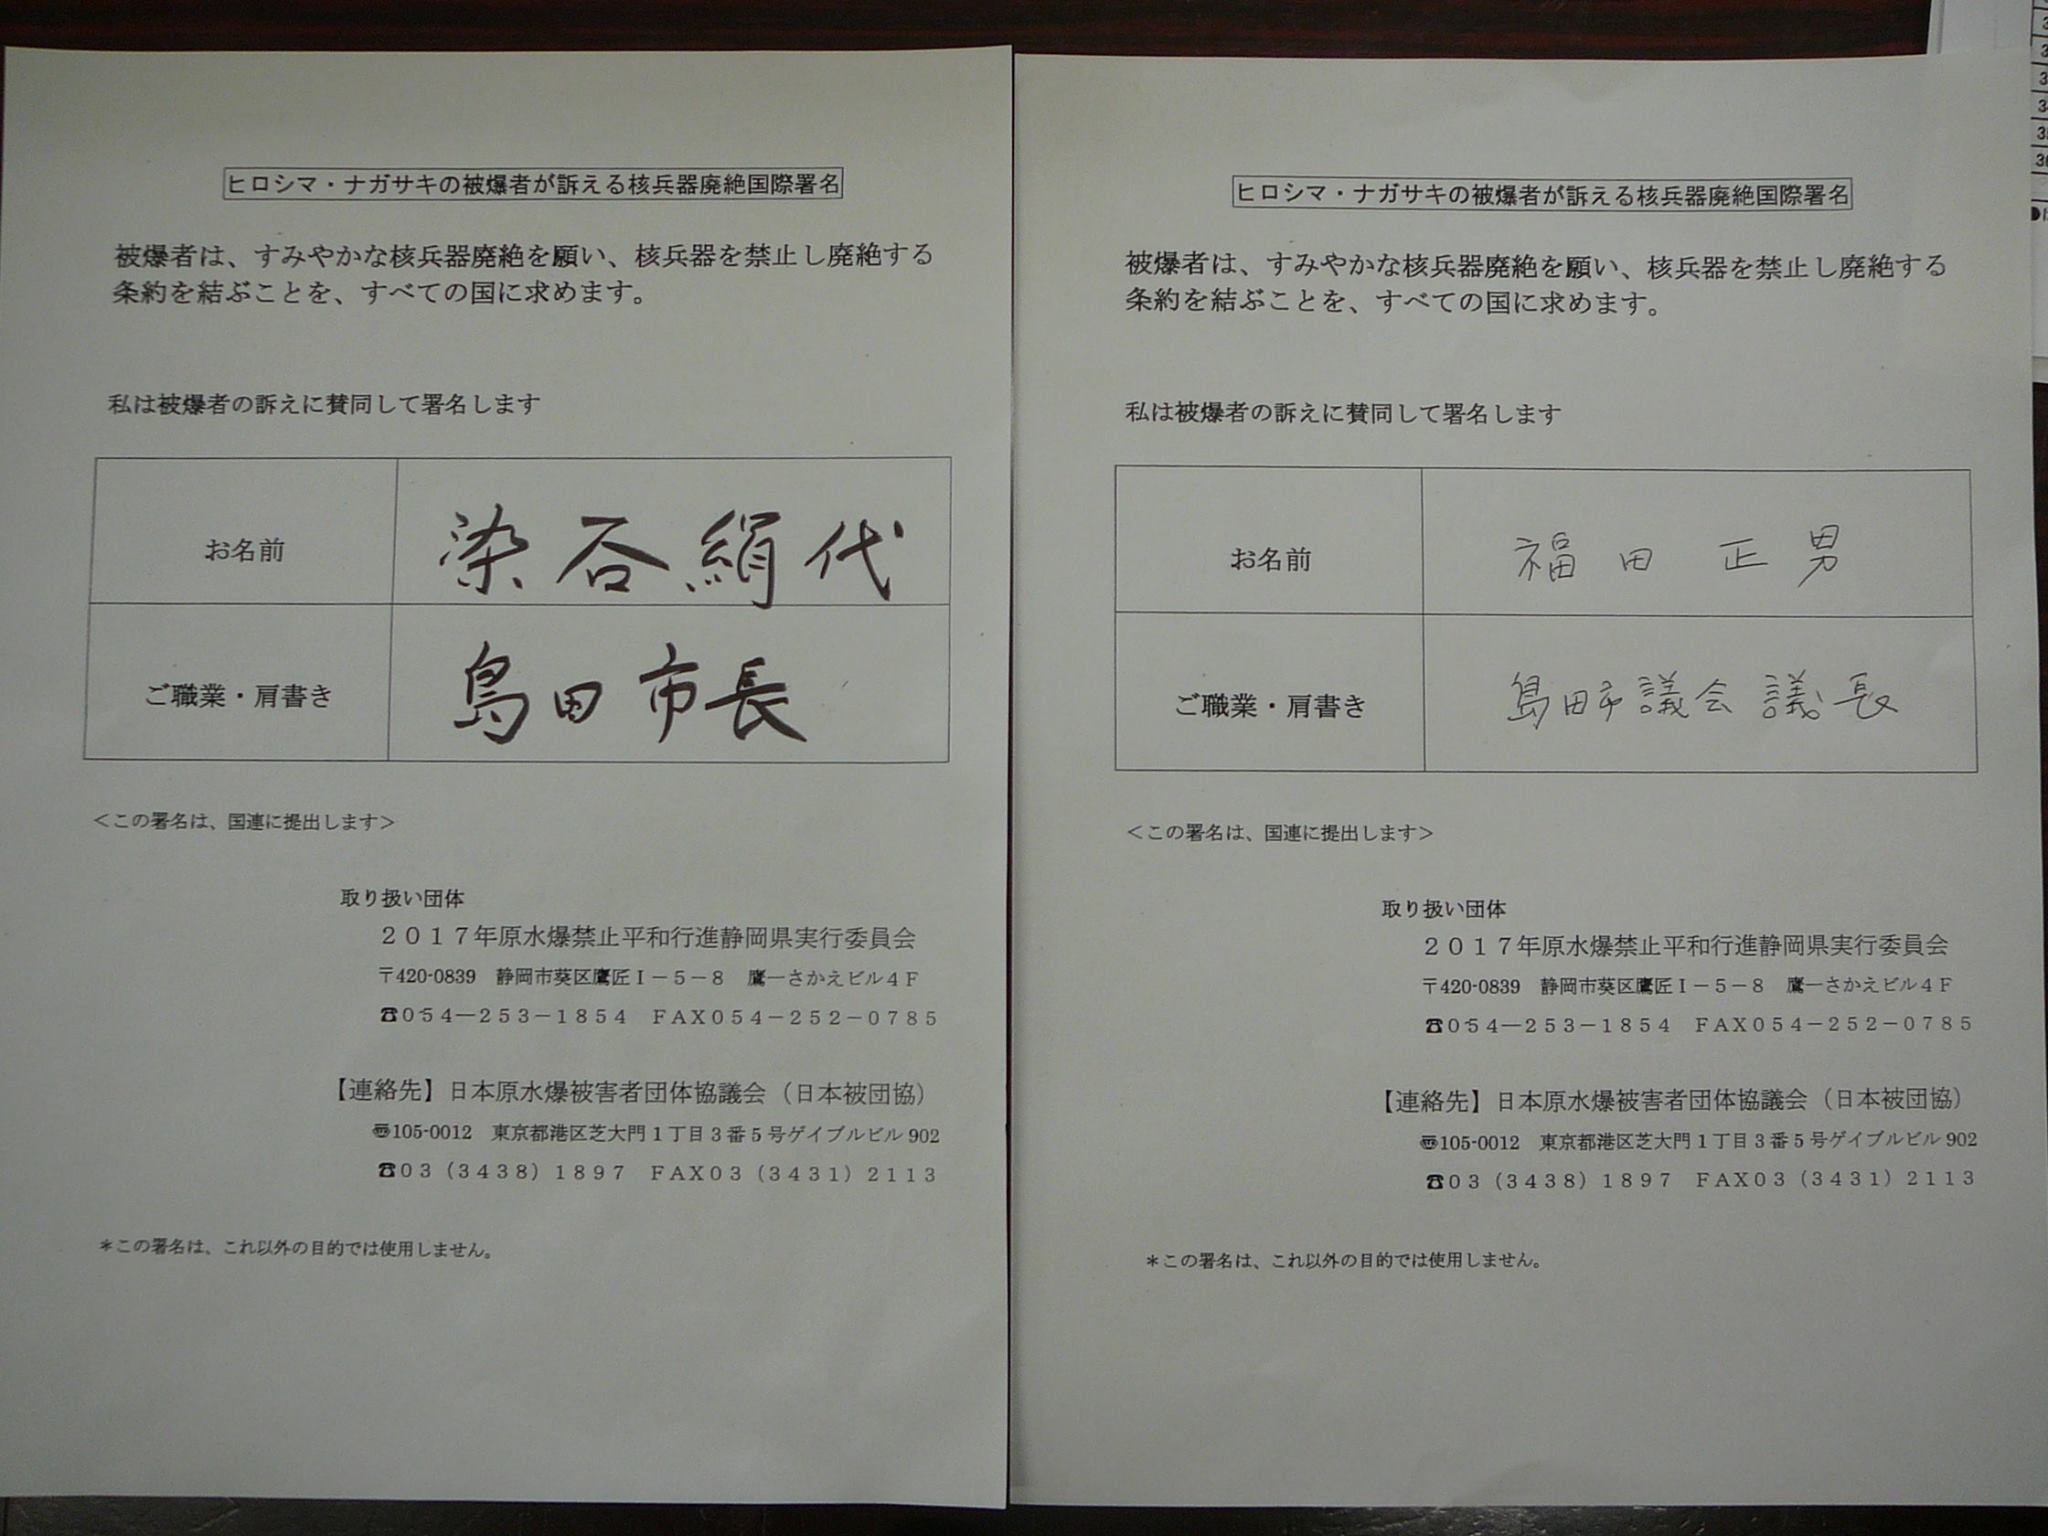 ヒロシマ・ナガサキの被爆者が訴える核兵器廃絶国際署名
被爆者は、すみやかな核兵器廃絶を願い、核兵器を禁止し廃絶する
条約を結ぶことを、すべての国に求めます。
私は被爆者の訴えに賛同して署名します
お名前
染谷絹代
ご職業・肩書き
島田市長
<この署名は、国連に提出します>
取り扱い団体
2017年原水爆禁止平和行進静岡県実行委員会
〒420-0839 静岡市葵区鷹匠Ⅰ－5－8 鷹一さかえビル4F
☎054―253－1854 FAX054－252－0785
【連絡先】日本原水爆被害者団体協議会（日本被団協）
〠105-0012 東京都港区芝大門1丁目3番5号ゲイブルビル902
☎03（3438）1897 FAX03（3431）2113
＊この署名は、これ以外の目的では使用しません。
ヒロシマ・ナガサキの被爆者が訴える核兵器廃絶国際署名
被爆者は、すみやかな核兵器廃絶を願い、核兵器を禁止し廃絶する
条約を結ぶことを、すべての国に求めます。
私は被爆者の訴えに賛同して署名します
お名前
福田 正男
ご職業・肩書き
島田市議会議長
<この署名は、国連に提出します>
取り扱い団体
2017年原水爆禁止平和行進静岡県実行委員会
〒420-0839 静岡市葵区鷹匠Ⅰ－5－8 鷹一さかえビル4F
☎054―253－1854 FAX054－252－0785
【連絡先】日本原水爆被害者団体協議会（日本被団協）
〠105-0012 東京都港区芝大門1丁目3番5号ゲイブルビル902
☎03（3438）1897 FAX03（3431）2113
＊この署名は、これ以外の目的では使用しません。